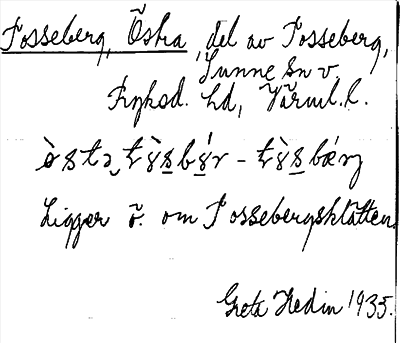 Tosseberg, Östra, del av Tosseberg,
Sunne sn v.
Fryksd. hd, Värml. l.
Ligger ö. om Tossebergsklätten.
Greta Hedin 1935.